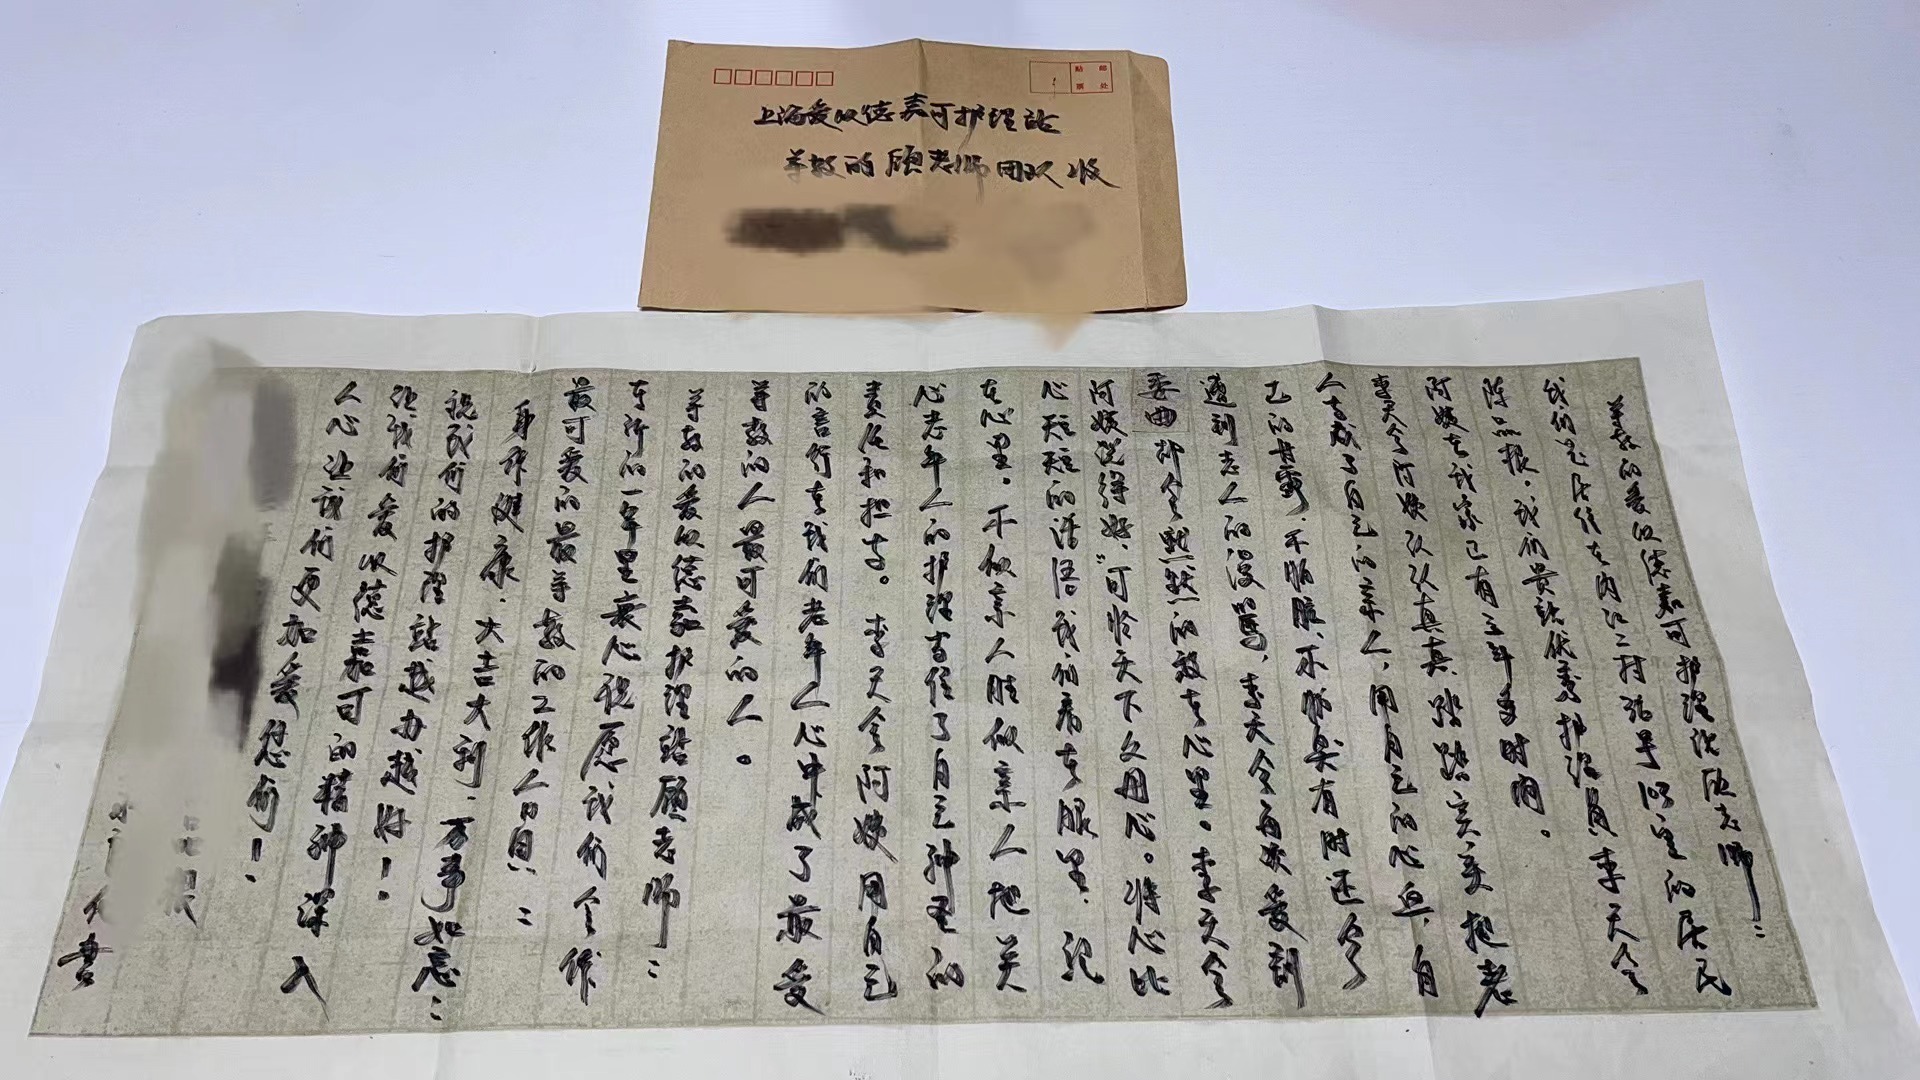 贴 邮
票 处
上海爱以德嘉可护理站
尊敬的顾老师团队收
尊敬的爱以德嘉可护理站顾老师：
我们是居住在内江二村 号 室的居民
陈品根。我们贵站优秀护理员李天令
阿姨在我家已有三年多时间。
李天令阿姨认认真真踏踏实实把老
人当成了自己的亲人，用自己的心血，自
己的 ，不怕脏、不怕臭有时还会
遭到老人的谩骂，李天令每次受到
委曲却会默默的放在心里。李天令
阿姨说得好，“可怜天下父母心。将心比
心短短的语话我们看在眼里、记
在心里。不似亲人胜似亲人把关
心老年人的护理当作了自己神圣的
责任和担当。李天令阿姨用自己
的言行在我们老年人心中成了最受
尊敬的人最可爱的人。
尊敬的爱以德嘉护理站顾老师：
在新的一年里衷心祝愿我们全体
最可爱的最尊敬的工作人员：
身体健康、大吉大利、万事如意：
祝我们的护理站越办越好！
让我们爱以德嘉可的精神深入
人心让我们更加爱您们！
根
书